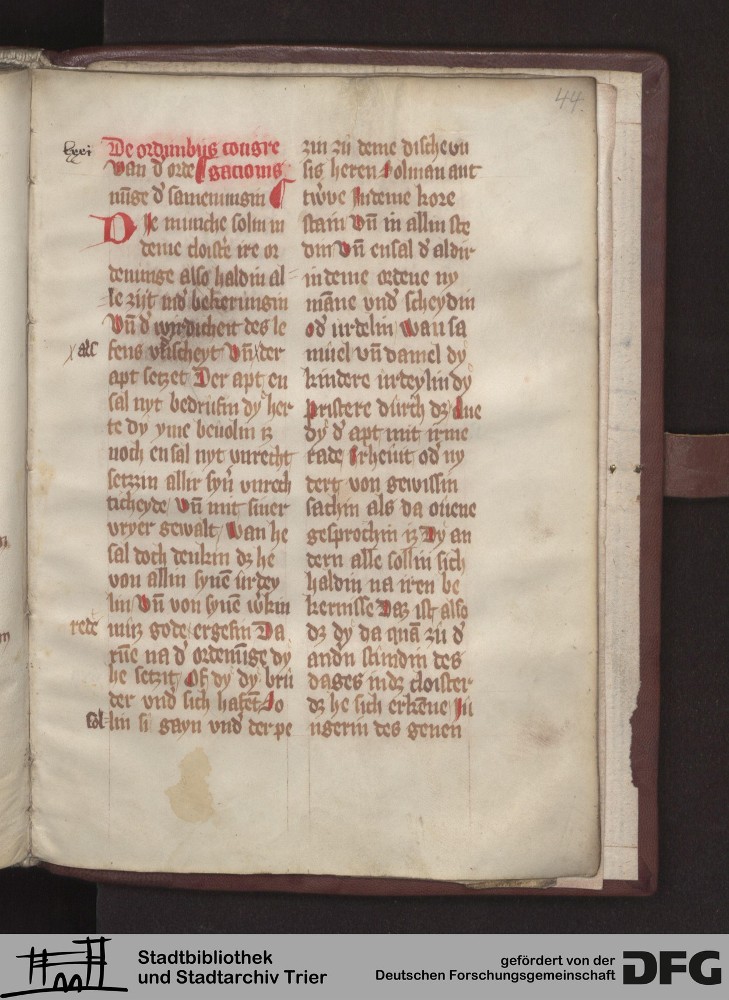 44.
lxxi
De ordinibus congre
van d' orde gacionis
nu̅ge d' sameninngin
Die muniche solin in
deme cloist'e ire or
denunge also haldin al
le zijt nid' bekeringin
Vn̅ d' wirdicheit des le
fens vnscheyt Vn̅ der
apt setzet Der apt en
sal nyt bedrufin dy her
te dy yme beuolin iz
noch en sal nyt vnrecht
setzzin allir syn' vnrech
ticheyde Vn̅ mit siner
vryer gewalt Wan he
sal doch denkin dz he
von allin syne̅ urdey
lin Vn̅ von syne̅ w'kin
rede
muz gode ergefin Da
ru̅e na d' ordenu̅ge dy
he setzit Of dy dy bru
der vnd sich hafe̅t So
sol-lin si gayn vnd der pe
zin zu deme dische vn
sis heren Solman ant
twve In deme kore
stain Vn̅ in allin ste
din Vn̅ ensal d' aldir
in deme ordene ny
ma̅ne vnd' scheydin
od' urdelin Wan sa
muel vn̅ daniel dy
kindere urdeylin dy
pristere durch dz Ane
dy d' apt mit irme
rade Irheuit od' ny
dert von gewissin
sachin als da ouene
gesprochin iz Dy an
dern alle sollin sich
haldin na iren be
kernisse Daz ist also
dz dy da qua̅ zu d'
andn̅ stundin des
dages indz cloister
dz he sich erke̅ne Ju
ngerin des genen
Stadtbibliothek
und Stadtarchiv Trier
gefördert von der
Deutschen Forschungsgemeinschaft
DFG